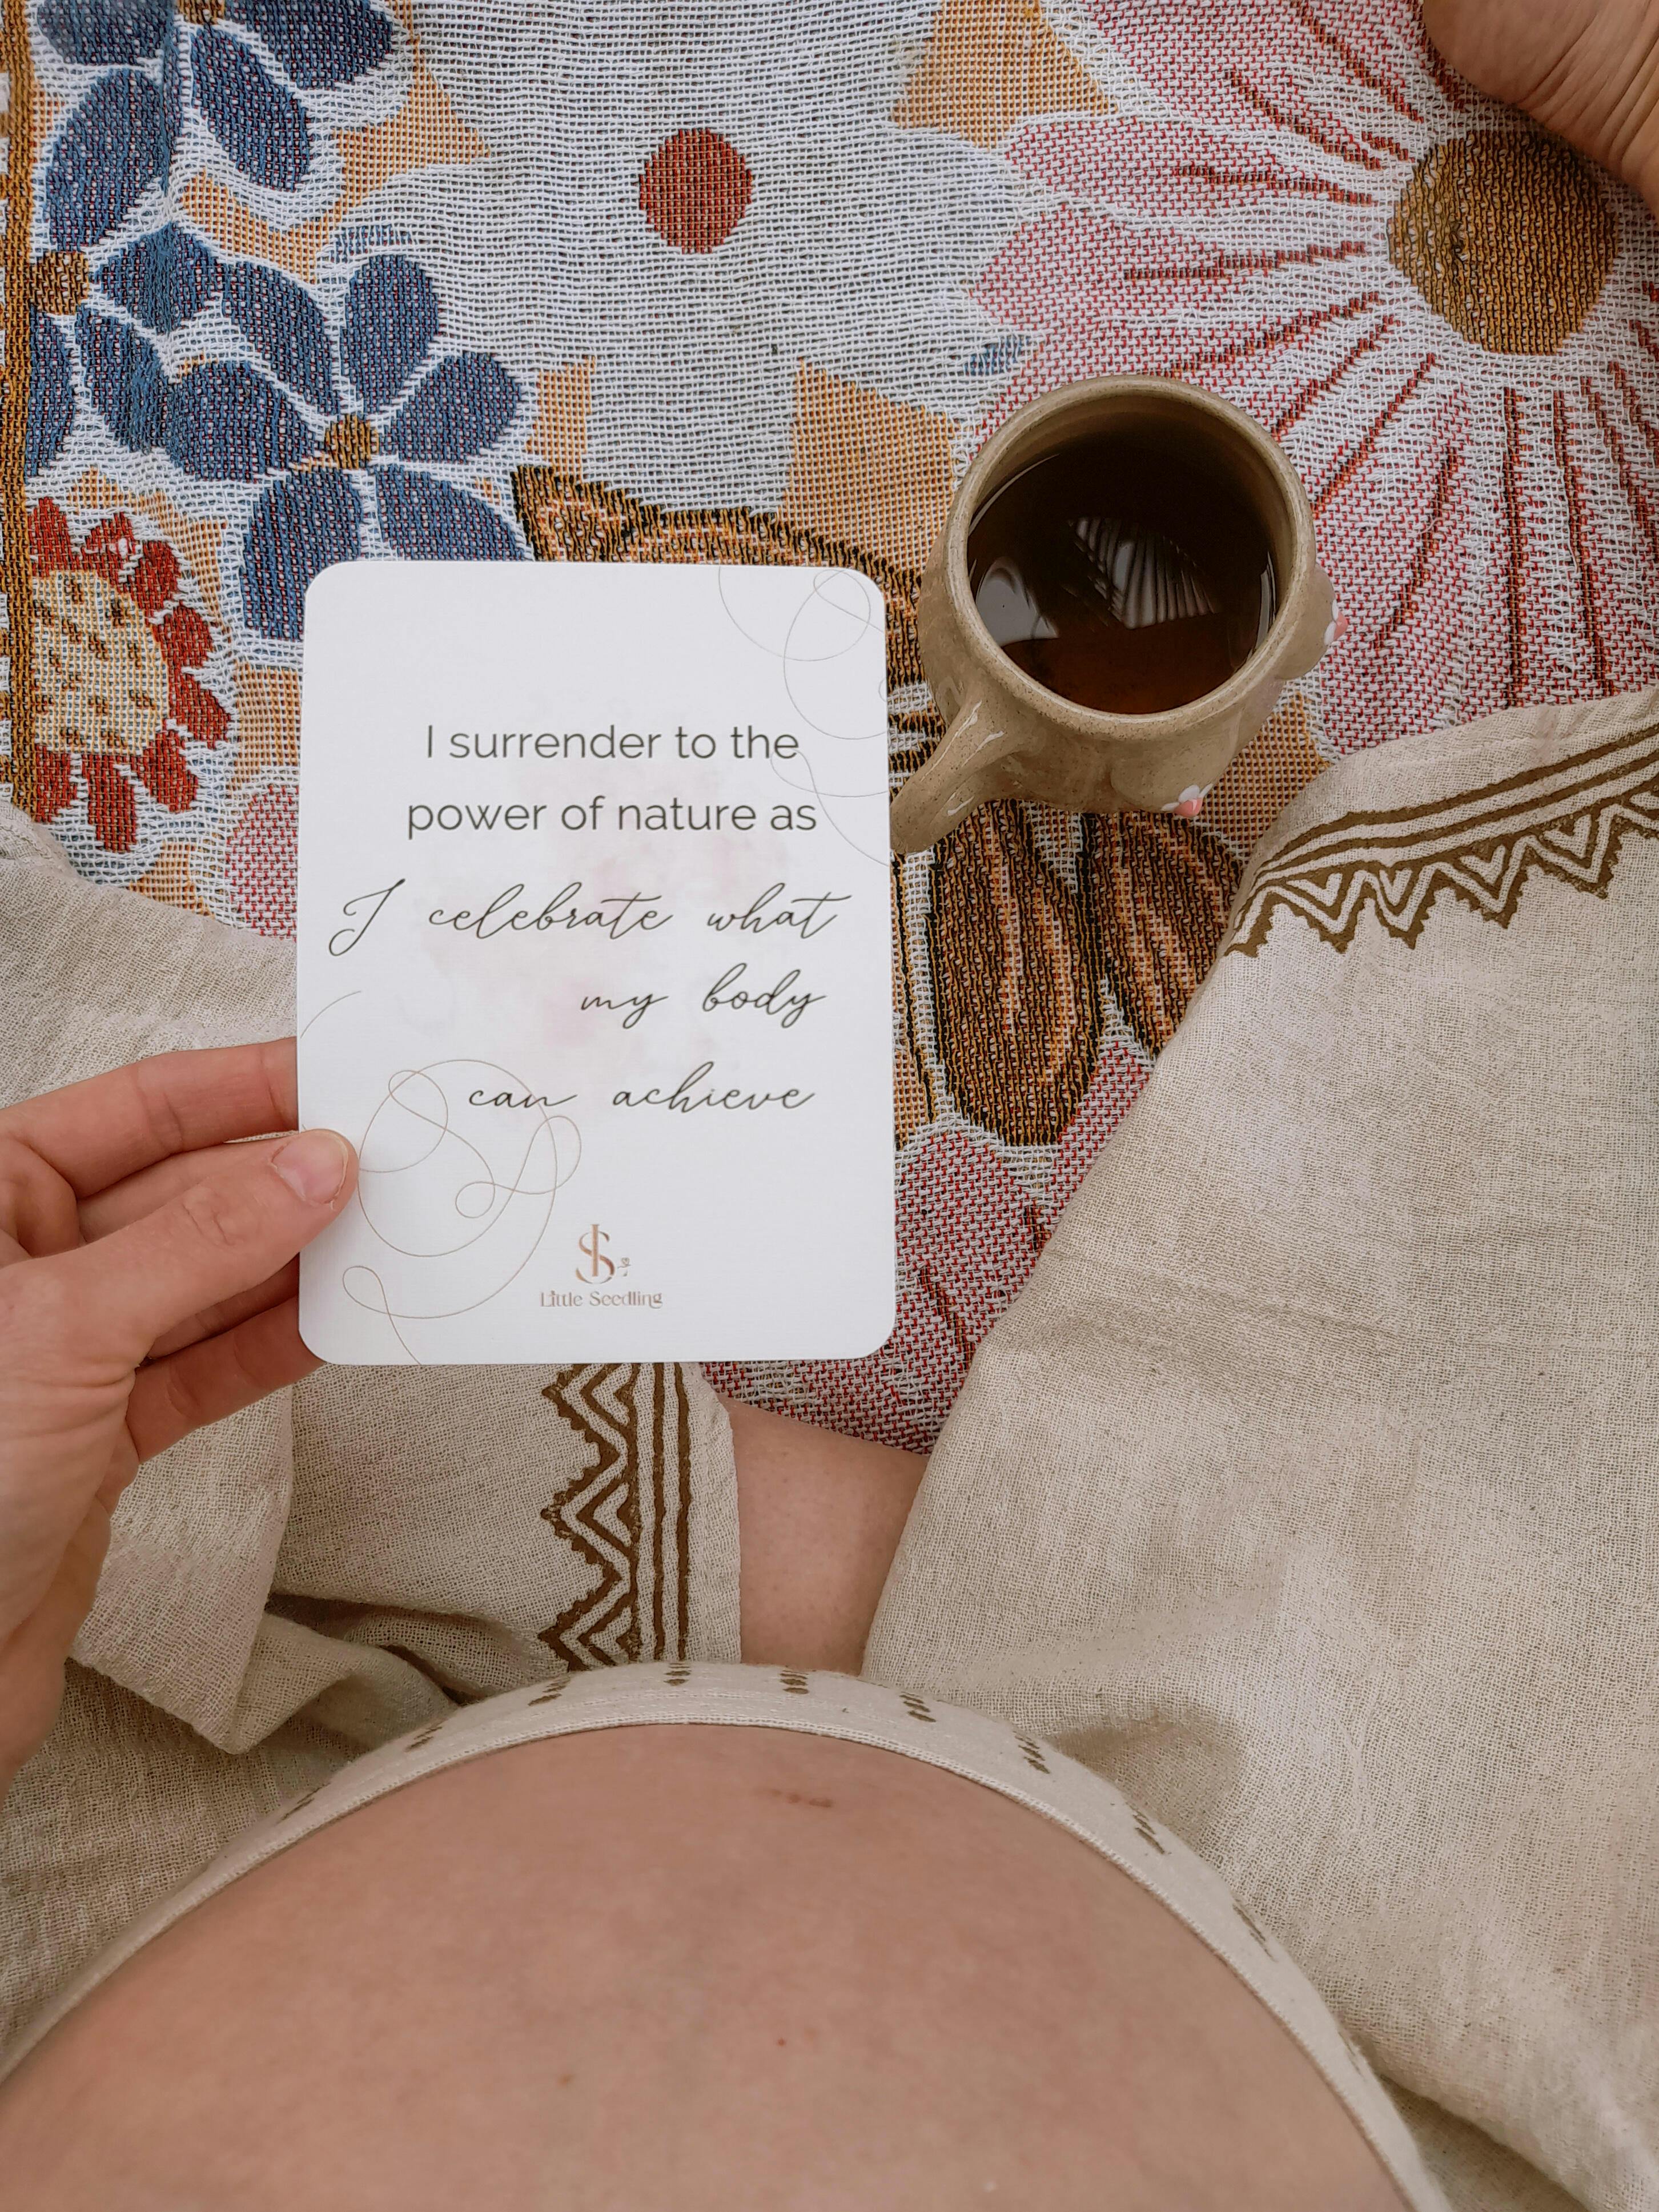 I surrender to the
power of nature as
I celebrate what
my body
can achieve
LS
Little Seedling